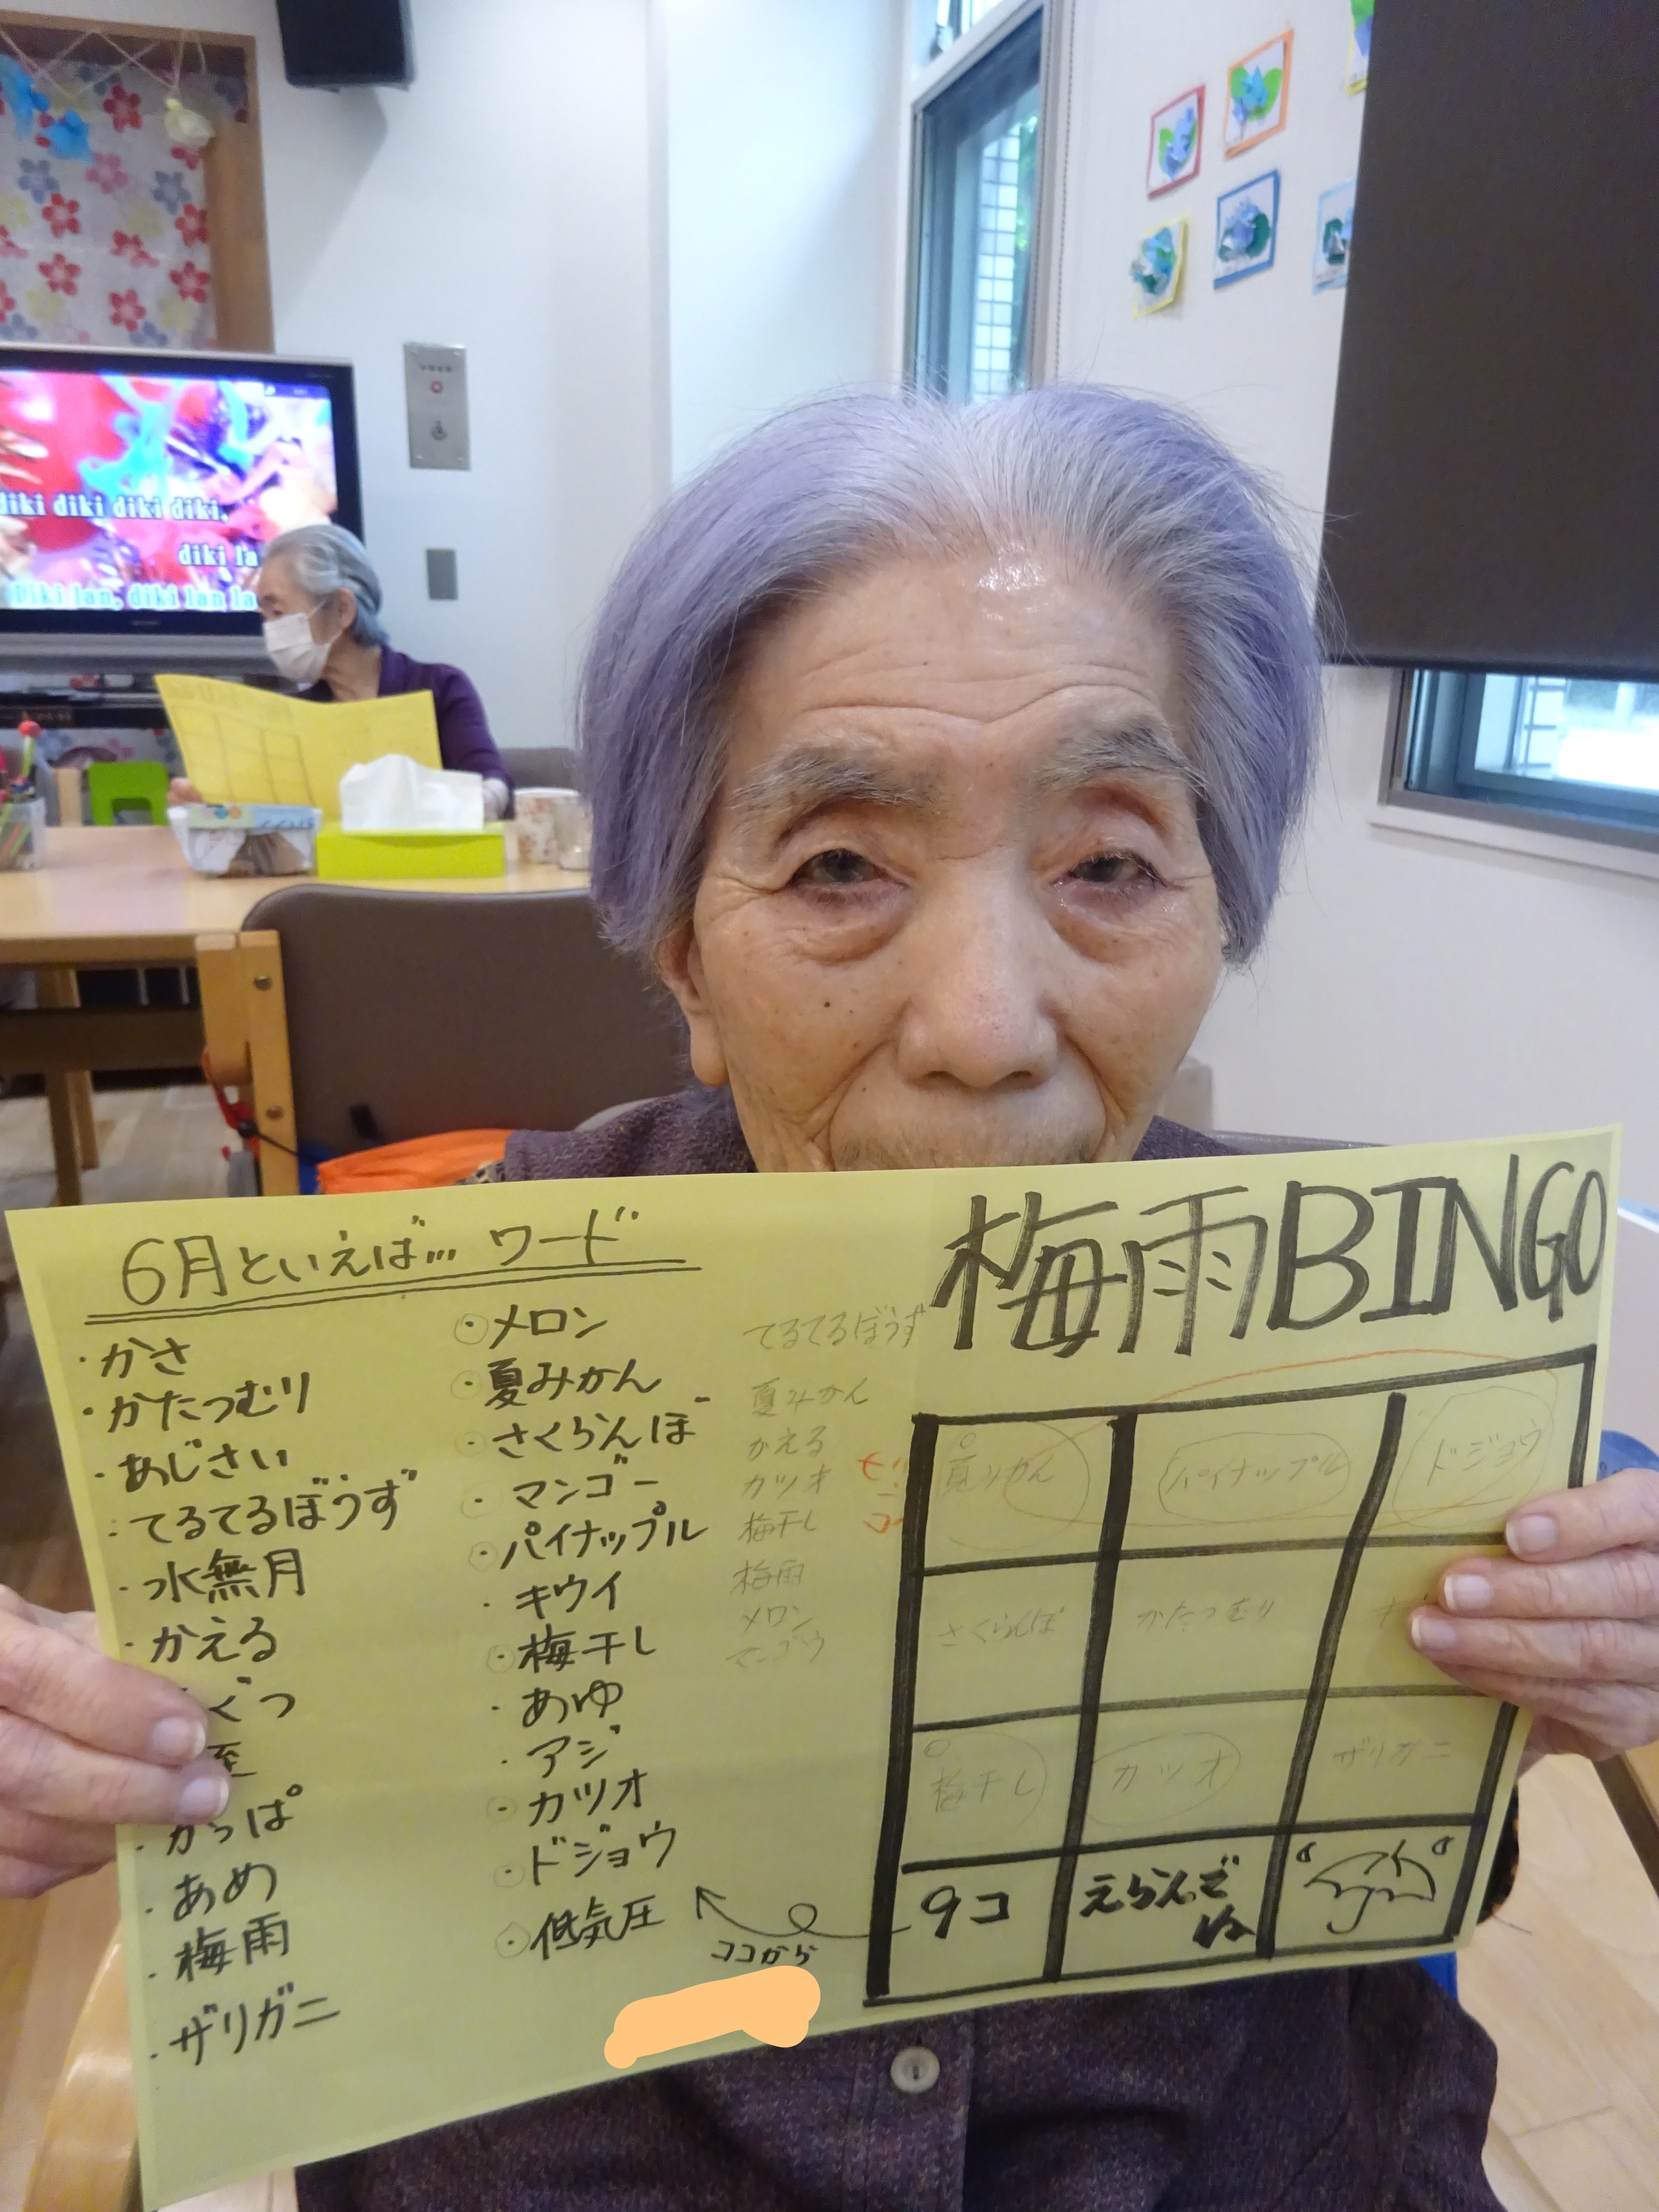 diki diki diki diki,
diki la
Diki lan, diki lan la
6月といえば… ワード
・かさ
・かたつむり
・あじさい
・てるてるぼうず
・水無月
・かえる
ぐつ
至
・かっぱ
・あめ
・梅雨
・ザリガニ
・メロン
・夏みかん
・さくらんぼ
・マンゴー
・パイナップル
・キウイ
・梅干し
・あゆ
・アジ
・カツオ
・ドジョウ
・低気圧
ココから
てるてるぼうず
夏みかん
かえる
カツオ
梅干し
梅雨
メロン
マンゴウ
梅雨BINGO
夏みかん パイナップル ドジョウ
さくらんぼ かたつむり
梅干し カツオ ザリガニ
9コ えらんでね